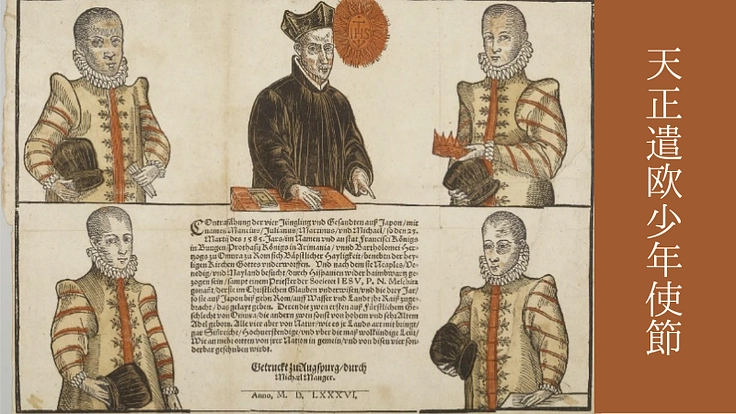 IHS
Contrafahung der vier Jüngling vnd Gesandten auß Japon/mit
namen Mancius/Julianus/Martinus/vnd Michael/so den 23.
Martij des 1585. Jars/im Namen vnd an stat Francisci Königs
in Bungen/Prothasij Königs in Arimania/vnnd Bartholomei Her-
tzogs zu Omura zu Rom sich Bäpstlicher Hayligkeit/
Kirchen Gottes vnderworffen. Vnd nach dem sie Neaples/Ve-
nedig/vnd Mayland besucht/durch Hispanien wider haimbwartz ge-
zogen sein/sampt einem Priester der Societet IESV, P. N.
genant/der sie im Christlichen Glauben vnderwisen/vnd die drey Jar/
so sie auß Japon biß gehn Rom/auff Wasser vnd Landt
geben. Deren die zwen ersten auß Fürstlichem Ge-
schlecht von Omura/die andern zwen sonst von hohem vnd sehr Altem
Adel geborn. Alle vier aber von Natur/wie es
gar Sinreiche/Hochuerstendige/vnd vber die maß
in gemein/vnd von disen vier son-
derbar geschriben wirdt.
Getruckt zu Augspurg/durch
Michael Manger.
Anno, M. D. LXXXVI.
天正遣欧少年使節